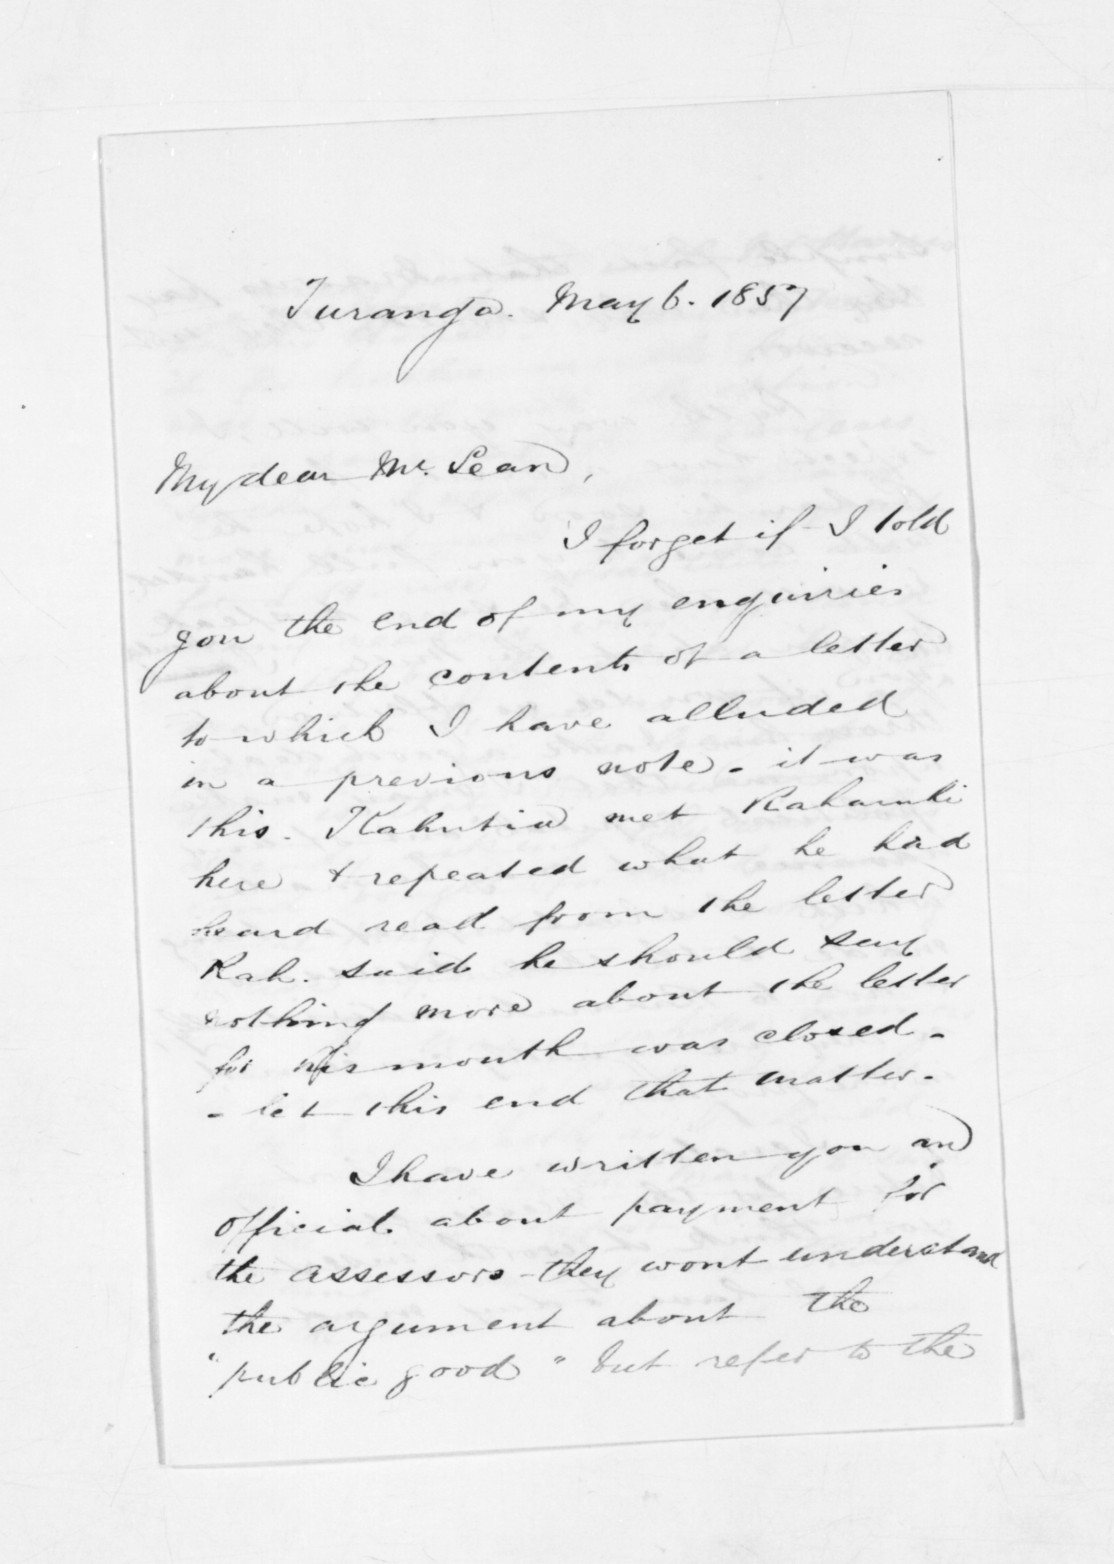 Turanga. May 6. 1857
My dear Mr. Lean,
I forget if I told
you the end of my enquiries
about the contents of a letter
to which I have alluded
in a previous note - it was
this. Kahutia met
here & repeated what he had
heard read from the letter
Rah. said he should say
nothing more about the letter
for his mouth was closed -
- let this end that matter -
I have written you an
official about payment for
the assessors - they wont understand
the argument about the
"public good" but refer to the